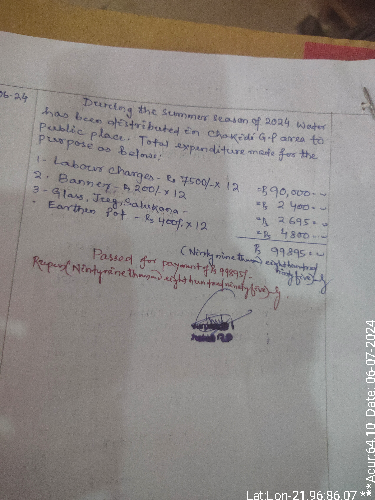 06-24
During the summer season of 2024 water
has been distributed in Chakidi G.P area to
public place. Total expenditure made for the
purpose as below:
1- Labour charges - ₨ 7500/- x 12 = ₨ 90,000=00
2. Banner - ₨ 200/- x 12 = ₨ 2400=00
3- Glass, Jeeg, Salukana - = ₨ 2695=00
- Earthen Pot - ₨ 400/- x 12 = ₨ 4800=00
₨ 99895=00
(Nintynine thousand eight hundred
ninty five)
Passed for payment of ₨ 99895/-
Rupees (Nintynine thousand eight hundred ninety five)
Lat:Lon-21.96:86.07 ***Acur:64.10 Date: 06-07-2024